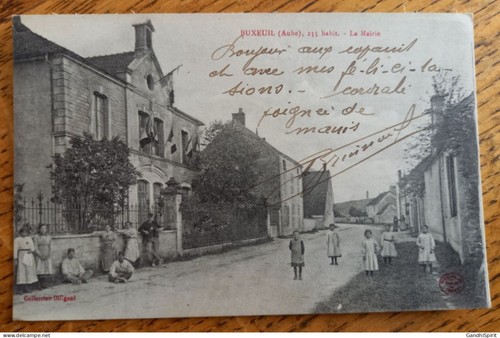 BUXEUIL (Aube), 235 habit. - La Mairie
Bonjour aux
et avec mes fé-li-ci-ta-
sions. - cordrale
poignée de
mains
Collection
www.delcampe.net
GandhiSpirit